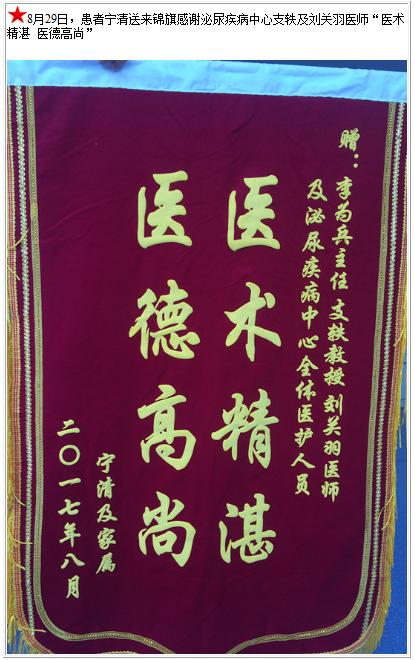 8月29日，患者宁清送来锦旗感谢泌尿疾病中心支轶及刘关羽医师“医术
精湛 医德高尚”
赠：李为兵主任 支轶教授 刘关羽医师
及泌尿疾病中心全体医护人员
医术精湛
医德高尚
宁清及家属
二〇一七年八月